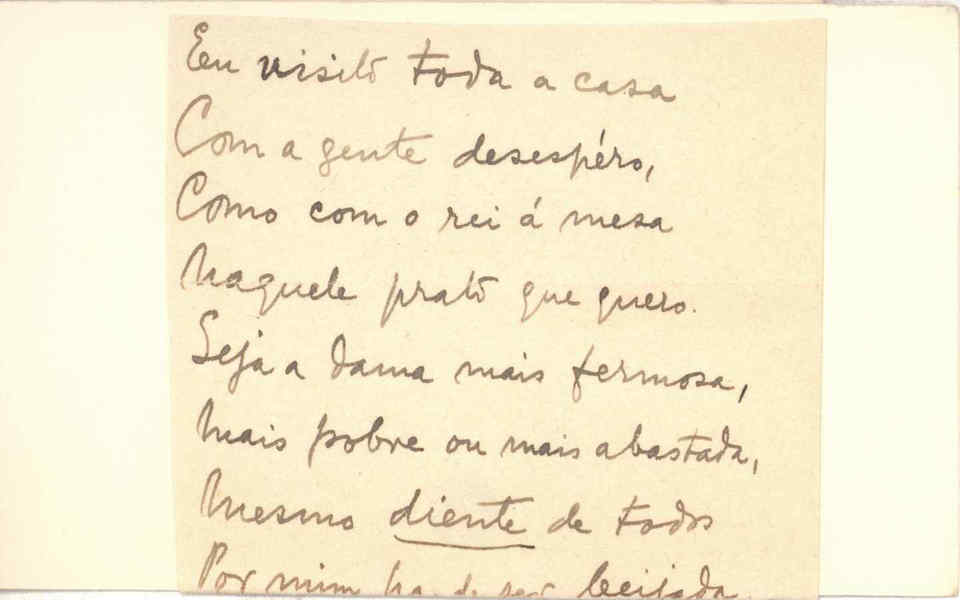 Eu visito toda a casa
Com a gente desespéro,
Como com o rei á mesa
Naquele prato que quero.
Seja a dama mais fermosa,
Mais pobre ou mais abastada,
Mesmo diente de todos
Por mim ha de ser beijada.